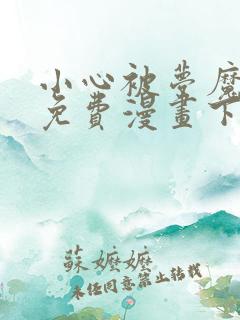 小心被夢魔
免費漫畫下
蘇嬤嬤
未經同意禁止轉載